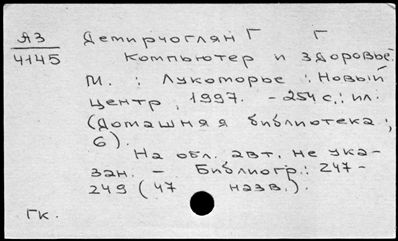 ЯЗ Демирчоглян Г Г
4145 Компьютер и здоровье.
М. : Лукоморье : Новый
центр, 1997. - 254 с.: ил.
(Домашняя библиотека ;
6).
На обл. авт. не ука-
зан. - Библиогр.: 247-
249 (47 назв.).
Гк.